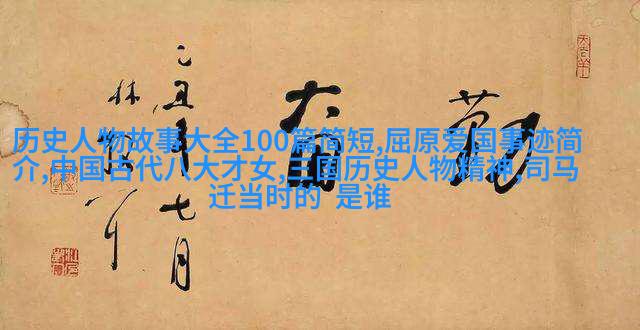 历史人物故事大全100篇简短,屈原爱国事迹简
介,中国古代八大才女,三国历史人物精神,司马
迁当时的 是谁
勤奋
乙丑年七月
林